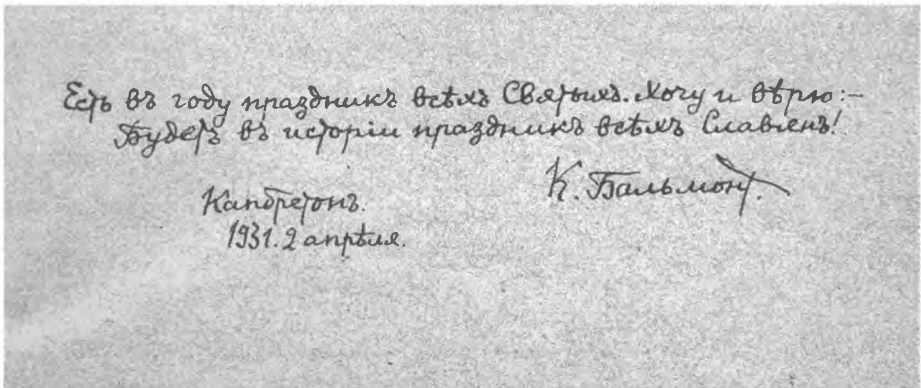 Есть въ году праздникъ всѣхъ Святыхъ. Хочу и вѣрю:–
Будетъ въ исторіи праздникъ всѣхъ Славянъ!
К. Бальмонт.
Капбретонъ.
1931. 2 апрѣля.